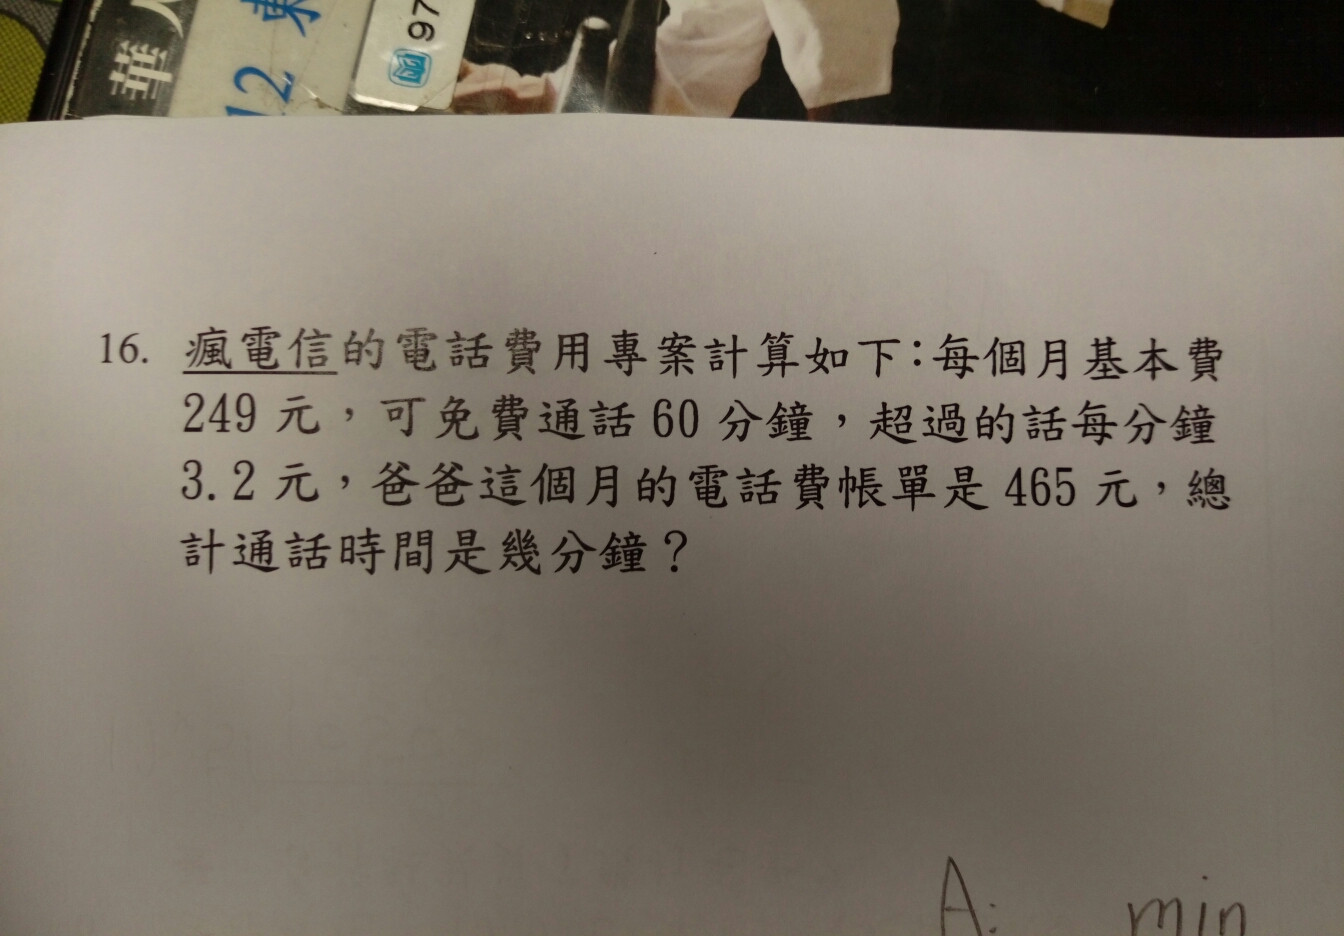 華人
12 東
97
16. 瘋電信的電話費用專案計算如下：每個月基本費
249 元，可免費通話 60 分鐘，超過的話每分鐘
3.2 元，爸爸這個月的電話費帳單是 465 元，總
計通話時間是幾分鐘？
A: min